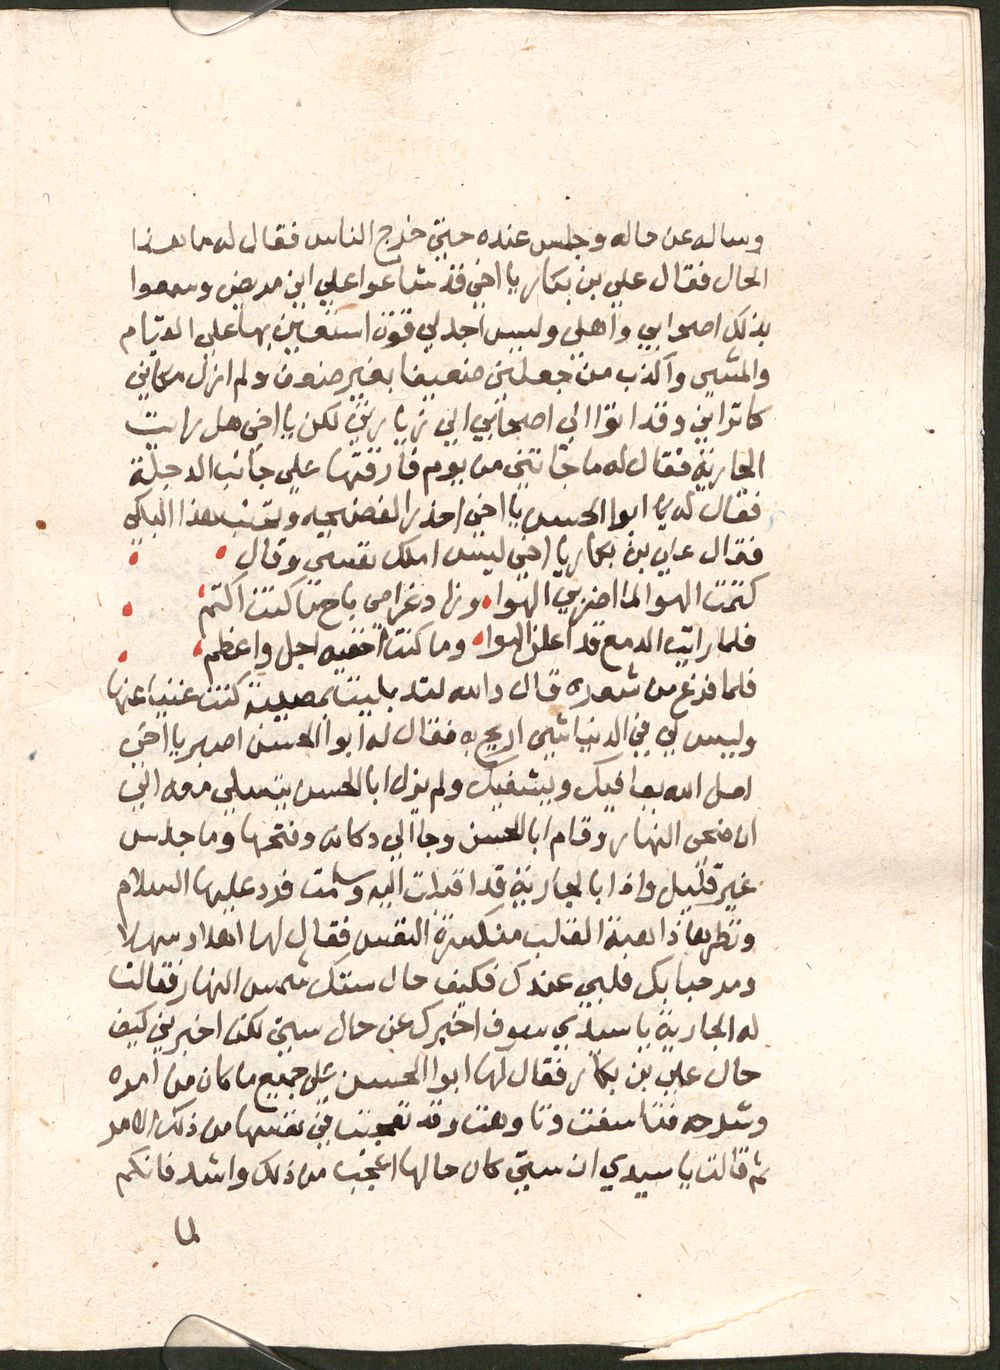 وساله عن حاله وجلس عنده حتي خرج الناس فقال له ما هذا
الحال فقال علي بن بكار يا اخي قد شاعوا علي اني مريض وسمعوا
بذلك اصحابي واهلي وليس اجد لي قوة استعين بها علي القيام
والمشي واكذب من جعلني ضعيفا بغير ضعف ولم ازل مكاني
كما تراني وقد اتوا الي اصحابي الي زيارتي لكن يا اخي هل رايت
الجارية فقال له ما جاتني من يوم فارقتها علي جانب الدجلة
فقال له يا ابوا الحسن يا اخي احذر الفضيحه وتجنب هذا البكي
فقال علي بن بكار يا اخي ليس املك نفسي وقال
كتمت الهوا لما اضر بي الهوا وزاد غرامي باح ما كنت اكتم
فلما رايت الدمع قد اعلن الهوا وما كنت اخفيه اجل واعظم
فلما فرغ من شعره قال والله لقد بليت بمصيبة كنت غنيا عنها
وليس لي في الدنيا شي اريح به فقال له ابوا الحسن اصبر يا اخي
لعل الله يعافيك ويشفيك ولم يزل ابا الحسن يتسلي معه الي
ان ضحي النهار وقام ابا الحسن وجا الي دكانه وفتحها وما جلس
غير قليل واذا بالجارية قد اقبلت اليه وسلمت فرد عليها السلام
ونظر بها ذاهبة القلب منكسرة النفس فقال لها اهلا وسهلا
ومرحبا بك قلبي عندك فكيف حال ستك شمس النهار فقالت
له الجارية يا سيدي سوف اخبرك عن حال ستي لكن اخبرني كيف
حال علي بن بكار فقال لها ابوا الحسن علي جميع ما كان من امره
وشرحه فتاسفت وتاوهت وقد تعجبت في نفسها من ذلك الامر
ثم قالت يا سيدي ان ستي كان حالها اعجب من ذلك واشد فانكم
لما